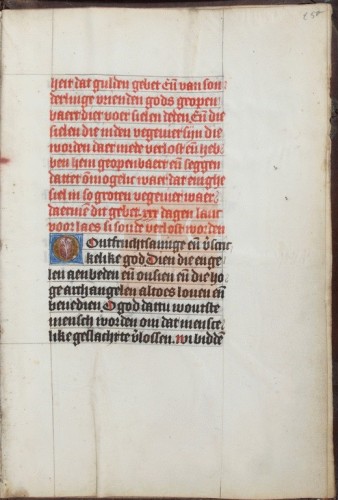 hiet dat gulden gebet Eñ van son
derlinge vrienden gods geopen
baert dier voer sielen deden Eñ die
sielen die inden vegevier sijn die
worden daer mede verlost eñ heb
ben hem geopenbaert eñ seggen
dattet oñmogelic waer dat enighe
siel in so groten vegevier waer
daermē dit gebet xxx dagen lanc
voor laes si soude verlost worden
Ontfruchtsamige eñ
kelike god Dien die enge
len aenbeden eñ onsien eñ die ho
ge archangelen altoes loven eñ
benedien O god dattu woutste
mensch worden om dat mensce
like geslachte v̄lossen Wi biddē